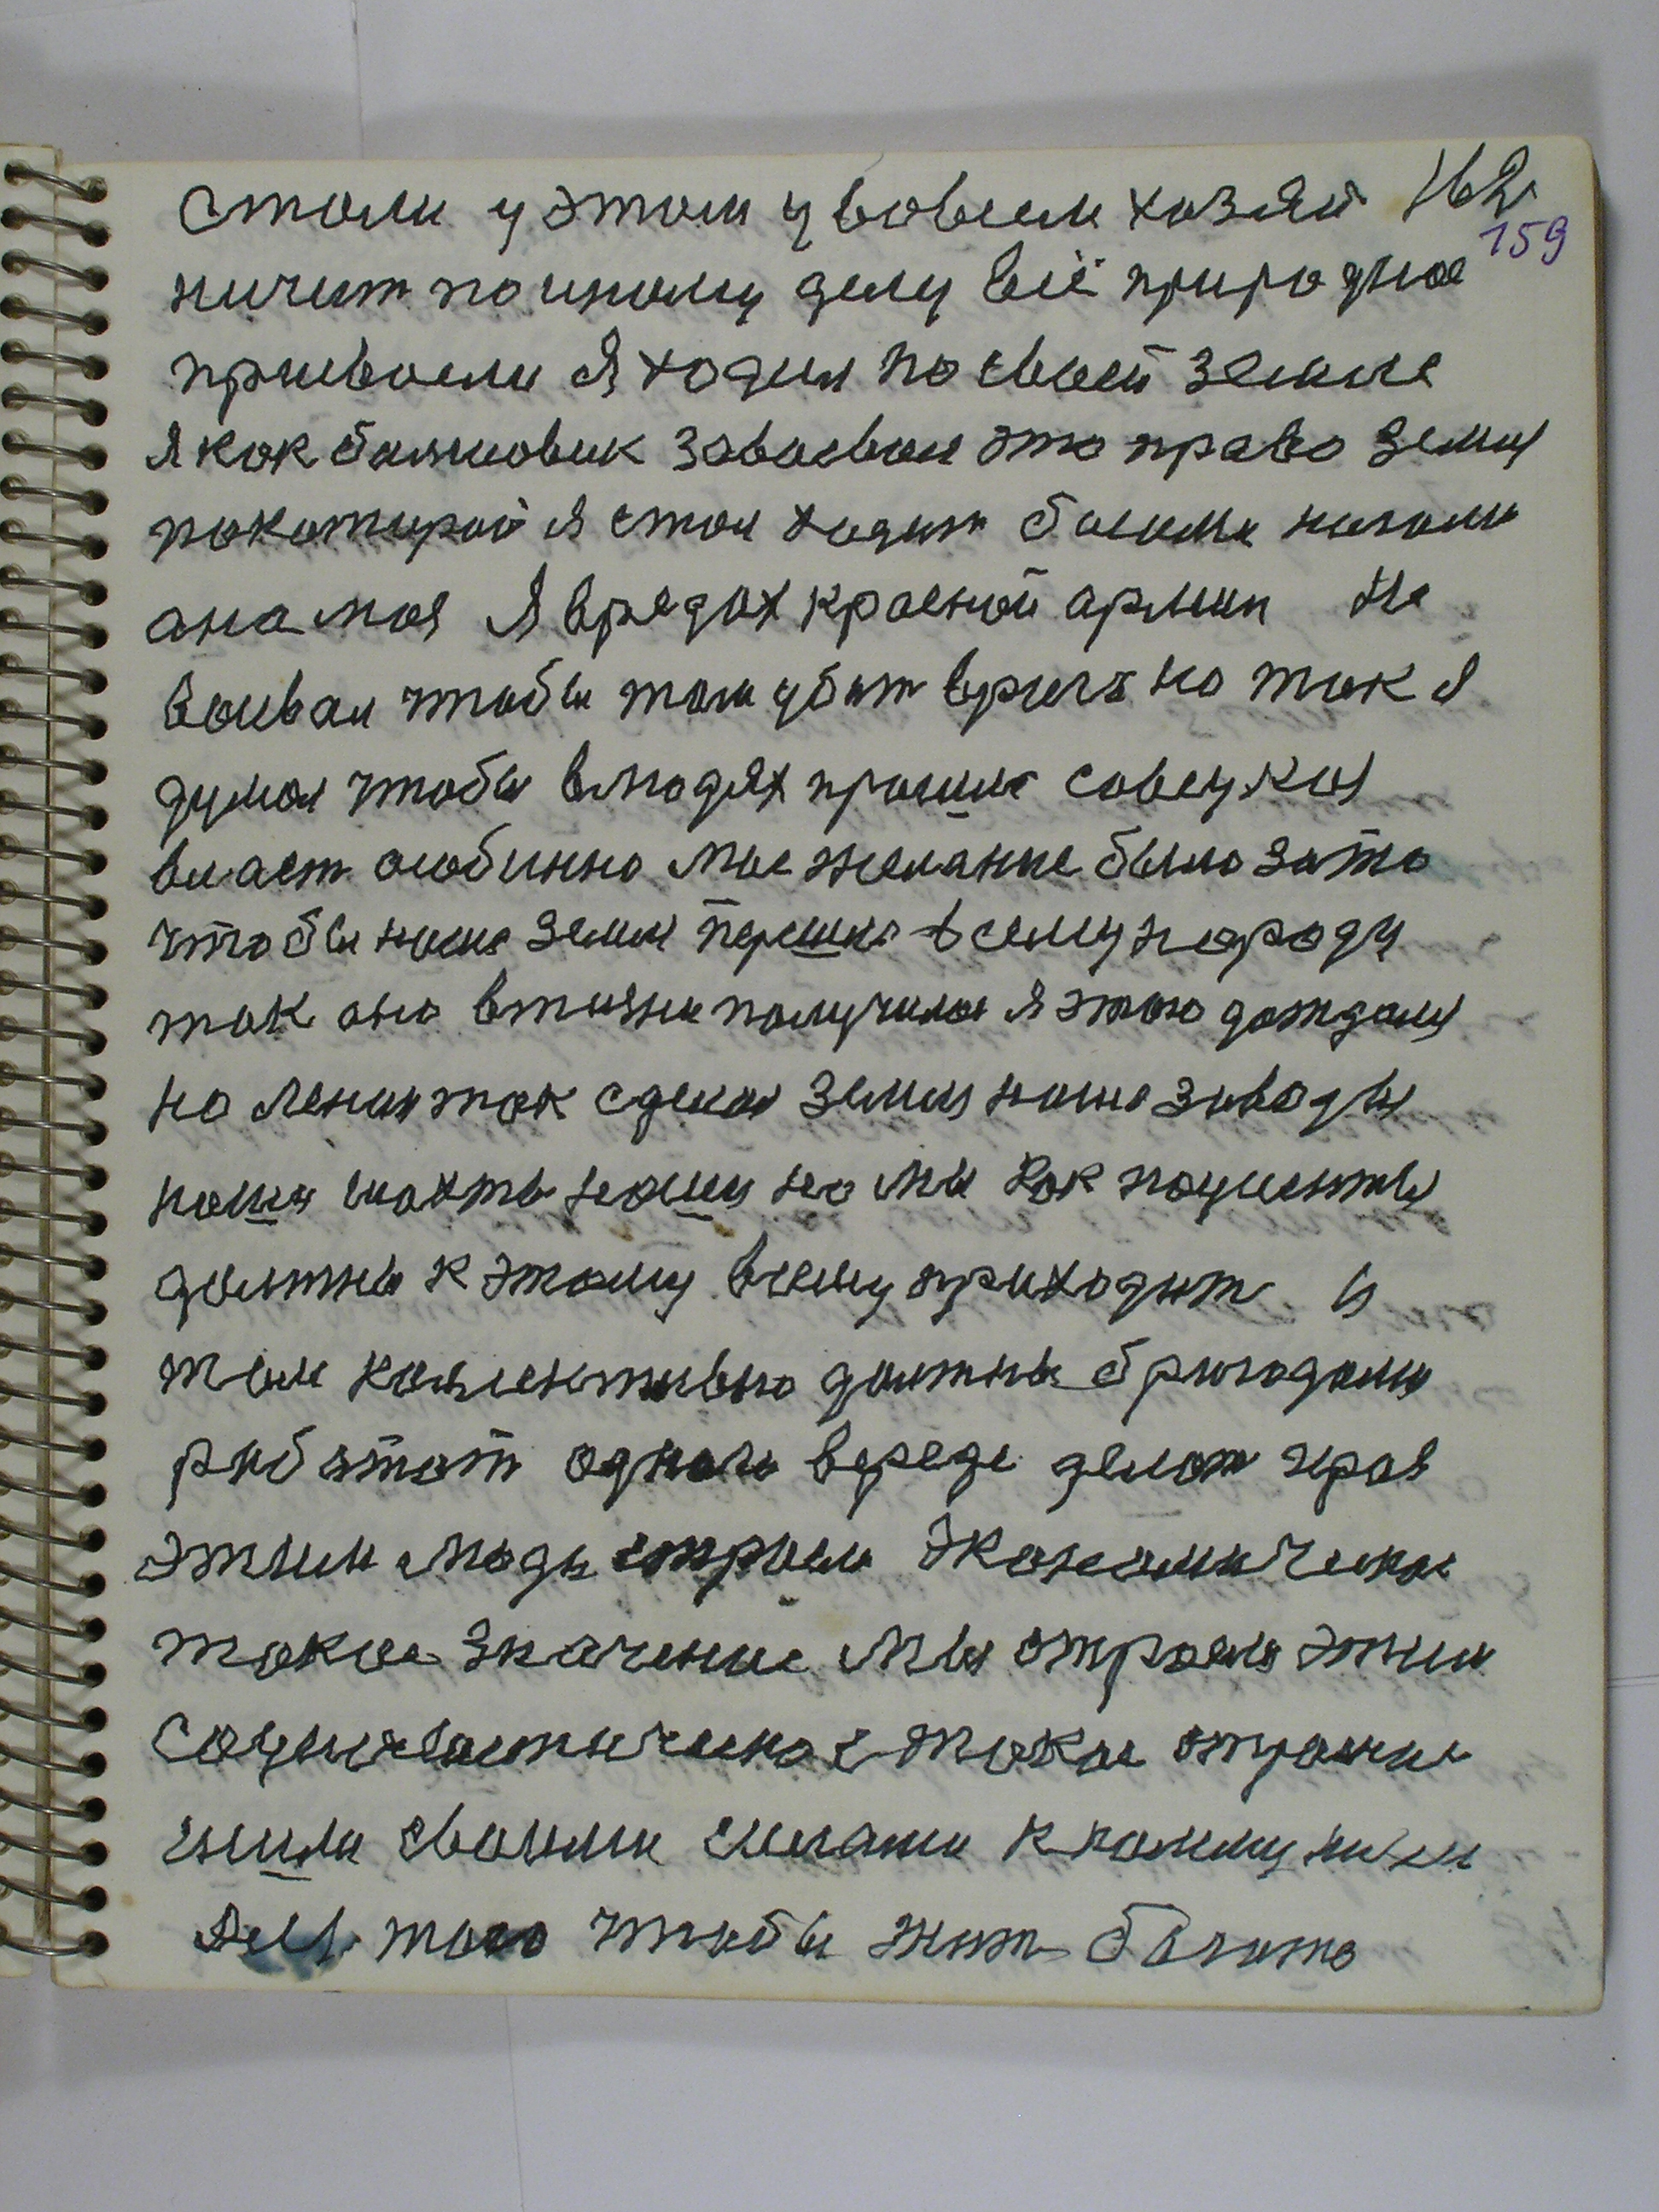 стали у этом у вовсем хозяй 162
159
ничит по иному делу всё природное
присвоели Я ходил по своей земле
я как балшовик завоевал это право земля
покоторой я стал ходит босыми ногами
ана моя Я врядах красной армии не
воивал чтобы там убит врага но так я
думал чтобы влюдях прошла совецкая
власт особинно мое желание было зато
чтобы наша земля перешла всему народу
так она вжизни получилас я этого дождаля
но Ленин так сделал земля наша заводы
наша шахты наши но мы как пациенты
должны к этому всему приходит и
там колективно должны бригадами
работат одного вереде делат герая
этим люди строели экономическое
такое значение мы строели этим
социалистическое такое строение
шли своими силами ккомунизм
для таго чтобы жит богато